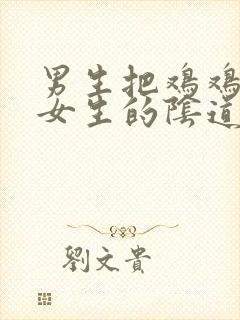 男生把鸡鸡
女生的陰道
劉文貴